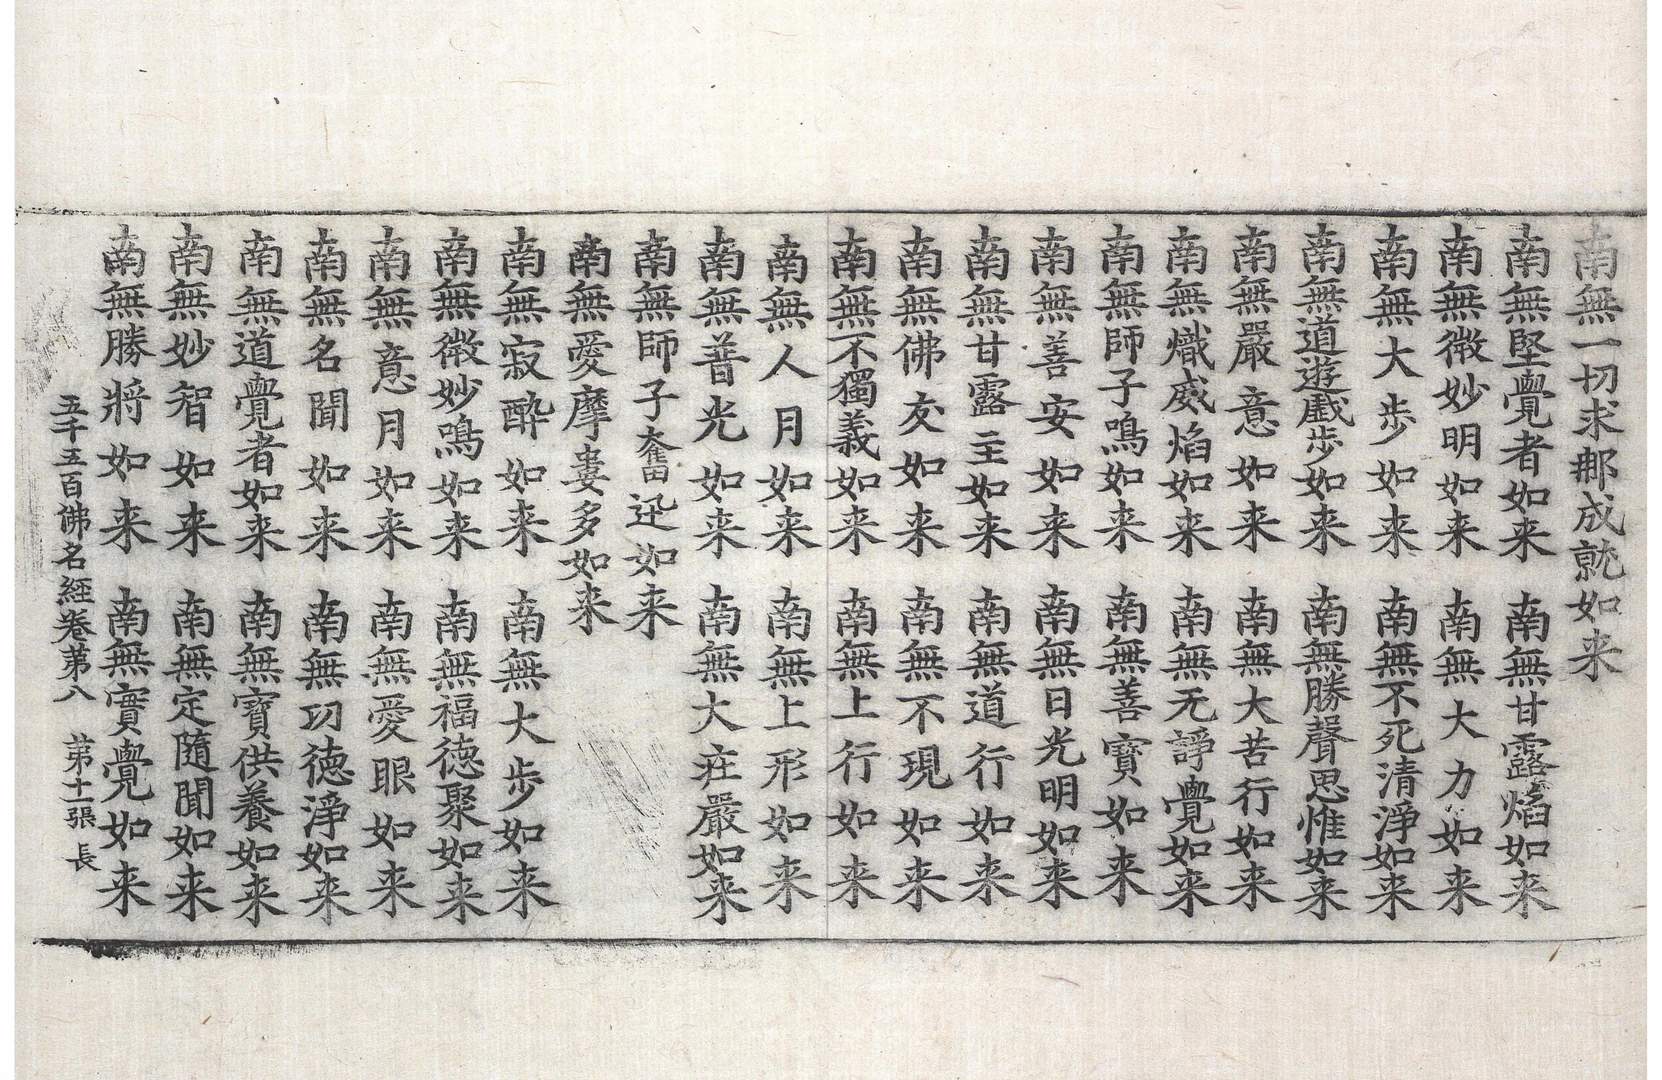 南無一切求那成就如来
南無堅覺者如来 南無甘露焰如来
南無微妙明如来 南無大力如来
南無大步如来 南無不死清淨如来
南無道遊戲步如来 南無勝聲思惟如来
南無嚴意如来 南無大苦行如来
南無熾威焰如来 南無无諍覺如来
南無師子鳴如来 南無善寶如来
南無善安如来 南無日光明如来
南無甘露主如来 南無道行如来
南無佛友如来 南無不現如来
南無不獨義如来 南無上行如来
南無人月如来 南無上形如来
南無普光如来 南無大庄嚴如来
南無師子奮迅如来
南無愛摩婁多如来
南無寂酔如来 南無大步如来
南無微妙鳴如来 南無福德聚如来
南無意月如来 南無愛眼如来
南無名聞如来 南無功德淨如来
南無道覺者如来 南無寶供養如来
南無妙智如来 南無定隨聞如来
南無勝將如来 南無實覺如来
五千五百佛名經卷第八 第十一張 長